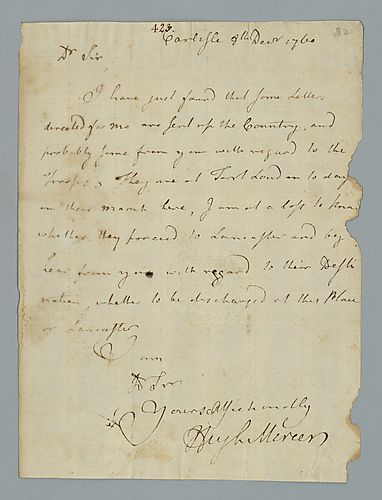 423.
Carlisle 8th Decr 1760
Dr Sir,
I have just found that some Letters
directed for me are sent up the Country, and
probably some from you with regard to the
Troops, They are at Fort Loudon to day
on their march here, I am at a loss to know
whether they proceed to Lancaster and beg
hear from you with regard to their Desti
nation, whether to be discharged at this Place
or Lancaster
I am
Dr Sir
Yours Affectionately
Hugh Mercer